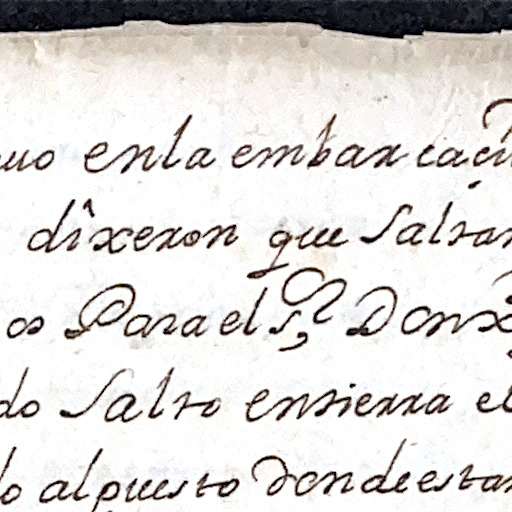 uo enla embarcaci
dixeron que saltar
os Para el sr Don
do salto entierra el
do alpuesto donde estan